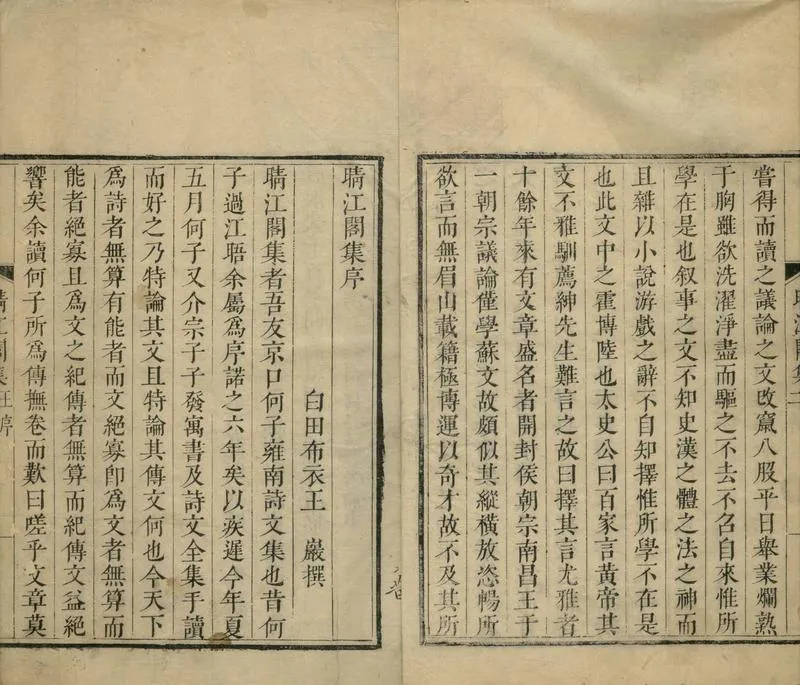 嘗得而讀之議論之文改竄八股平日舉業爛熟
于胸雖欲洗濯淨盡而驅之不去不召自來惟所
學在是也叙事之文不知史漢之體之法之神而
且雜以小說游戲之辭不自知擇惟所學不在是
也此文中之霍博陸也太史公曰百家言黃帝其
文不雅馴薦紳先生難言之故曰擇其言尤雅者
十餘年來有文章盛名者開封侯朝宗南昌王于
一朝宗議論僅學蘇文故頗似其縱橫放恣暢所
欲言而無眉山載籍極博運以奇才故不及其所
晴江閣集序
白田布衣王 巖撰
晴江閣集者吾友京口何子雍南詩文集也昔何
子過江晤余屬爲序諾之六年矣以疾遲今年夏
五月何子又介宗子子發寓書及詩文全集手讀
而好之乃特論其文且特論其傳文何也今天下
爲詩者無算有能者而文絕寡卽爲文者無算而
能者絕寡且爲文之紀傳者無算而紀傳文益絕
響矣余讀何子所爲傳撫卷而歎曰嗟乎文章莫
晴江閣集王序